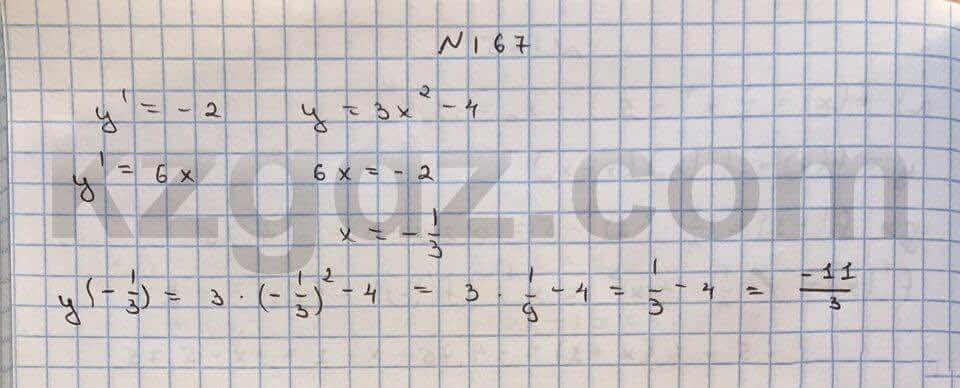 N 167
y' = - 2 y = 3x² - 4
y' = 6x 6x = - 2
x = - 1/3
y(- 1/3) = 3 · (- 1/3)² - 4 = 3 · 1/9 - 4 = 1/3 - 4 = -11/3
kzgdz.com